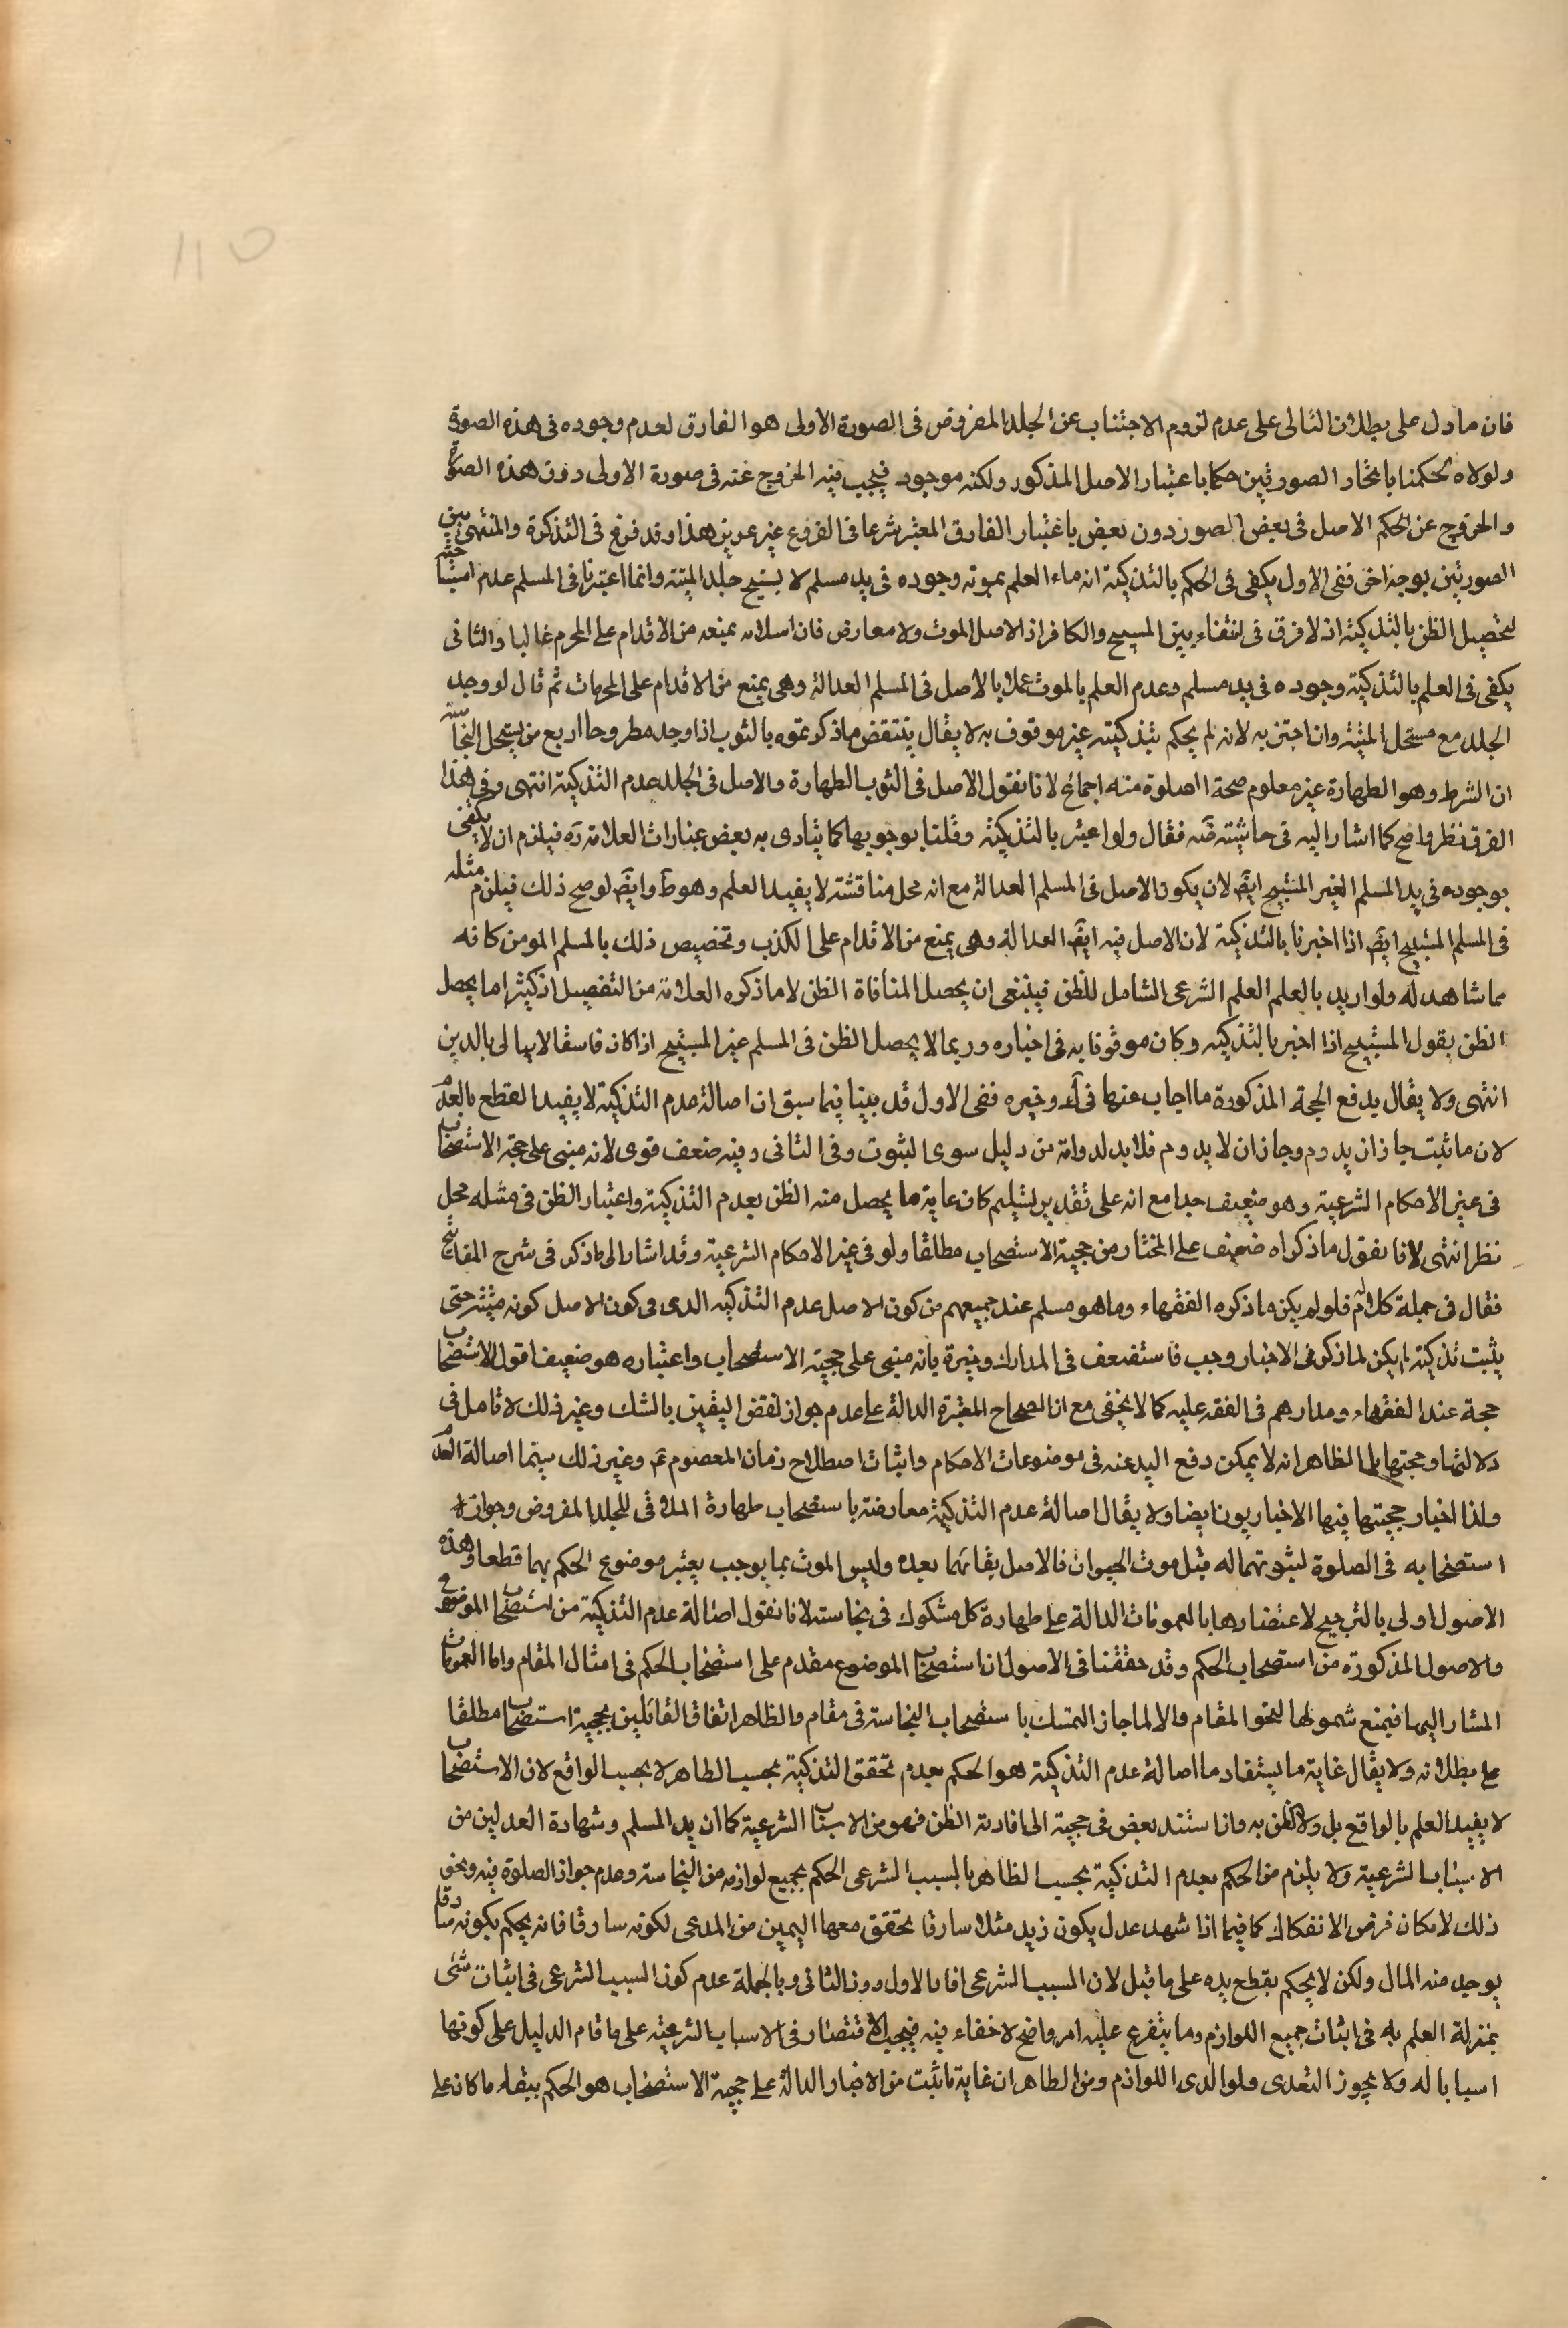 ١١٥
فان ما دل على بطلان التالى على عدم لزوم الاجتناب عن الجلد المفروض فى الصورة الاولى هو الفارق لعدم وجوده فى هذه الصورة
ولولاه لحكمنا باتحاد الصورتين حكما باعتبار الاصل المذكور ولكنه موجود فيجب فيه الخروج عنه فى صورة الاولى دون هذه الصورة
والخروج عن الحكم الاصل فى بعض الصور دون بعض باعتبار الفارق المعتبر شرعا فى الفروع غير عزيز هذا وقد فرق فى التذكرة والمنتهى بين
الصورتين بوجه اخر ففى الاول يكفى فى الحكم بالتذكية انتفاء العلم بموته وجوده فى يد مسلم لا يستبيح جلد الميتة وانما اعتبرنا فى المسلم عدم استباحته
ليحصل الظن بالتذكية اذ لا فرق فى انتفاء بين المبيح والكافر اذ الاصل الموت ولا معارض فان اسلامه يمنعه من الاقدام على المحرم غالبا والثانى
يكفى فى العلم بالتذكية وجوده فى يد مسلم وعدم العلم بالموت عملا بالاصل فى المسلم العدالة وهى يمنع من الاقدام على المحرمات ثم قال لو وجد
الجلد مع مستحل الميتة وان اخبر به لانه لم يحكم بتذكيته غير موقوف به لا يقال ينتقض ما ذكرتموه بالثوب اذا وجد مطروحا او بيع من يستحل النجاسة
ان الشرط وهو الطهارة غير معلوم صحة الصلوة منه اجماع لانا نقول الاصل فى الثوب الطهارة والاصل فى الجلد عدم التذكية انتهى وفى هذا
الفرق نظر واضح كما اشار اليه فى حاشيته ضه فقال ولو اعتبر بالتذكية وقلنا بوجوبها كما ينادى به بعض عبارات العلامة ره فيلزم ان لا يكفى
بوجوده فى يد المسلم الغير المستبيح ايض لان يكون الاصل فى المسلم العدالة مع انه محل مناقشة لا يفيد العلم وهو ظ وايض لو صح ذلك فيلزم مثله
فى المسلم المستبيح ايض اذا اخبرنا بالتذكية لان الاصل فيه ايض العدالة وهى يمنع من الاقدام على الكذب وتخصيص ذلك بالمسلم المومن كانه
مما شاهد له ولو اريد بالعلم العلم الشرعى الشامل للظن فينبغى ان يحصل المنافاة الظن لا ما ذكره العلامة من التفصيل اذ كثيرا ما يحصل
الظن بقول المستبيح اذا اخبر بالتذكية وكان موثوقا به فى اخباره وربما لا يحصل الظن فى المسلم غير المستبيح اذا كان فاسقا لا يبالى بالدين
انتهى ولا يقال يدفع الحجة المذكورة ما اجاب عنها فى ك وخيره ففى الاول قد بينا فيما سبق ان اصالة عدم التذكية لا يفيد القطع بالعدم
لان ما ثبت جاز ان يدوم وجاز ان لا يدوم فلا بد لدوامه من دليل سوى الثبوت وفى الثانى وفيه ضعف قوى لانه مبنى على حجية الاستصحاب
فى غير الاحكام الشرعية وهو ضعيف جدا مع انه على تقدير تسليم كان غاية ما يحصل منه الظن بعدم التذكية واعتبار الظن فى مثله محل
نظر انتهى لانا نقول ما ذكراه ضعيف على المختار من حجية الاستصحاب مطلقا ولو فى غير الاحكام الشرعية وقد اشار الى ما ذكر فى شرح المفاتيح
فقال فى جملة كلام فلو لم يكن ما ذكره الفقهاء وما هو مسلم عند جميعهم من كون الاصل عدم التذكية الدى فى كون الاصل كونه ميتة حتى
يثبت تذكيته لم يكن لما ذكر فى الاخبار وجب فاستضعف فى المدارك وغيره بانه مبنى على حجية الاستصحاب واعتباره هو ضعيف اقول الاستصحاب
حجة عند الفقهاء ومدارهم فى الفقه عليه كما لا يخفى مع ان الصحاح المعتبرة الدالة على عدم جواز نقض اليقين بالشك وغير ذلك لا تامل فى
دلالتها وحجتها بل الظاهر انه لا يمكن رفع اليد عنه فى موضوعات الاحكام واثبات اصطلاح زمان المعصوم ع وغير ذلك سيما اصالة العدم
ولذا اختار حجيتها فيها الاخباريون ايضا ولا يقال اصالة عدم التذكية معارضة باستصحاب طهارة الملاقى للجلد المفروض وجواز
استصحابه فى الصلوة لثبوتهما له قبل موت الحيوان فالاصل بقائهما بعده وليس الموت مما يوجب تغيير موضوع الحكم بهما قطعا وهذه
الاصول اولى بالترجيح لاعتضادها بالعمومات الدالة على طهارة كل مشكوك فى نجاسته لانا نقول اصالة عدم التذكية من استصحاب الموضوع
والاصول المذكورة من استصحاب الحكم وقد حققنا فى الاصول ان استصحاب الموضوع مقدم على استصحاب الحكم فى امثال المقام واما العمومات
المشار اليها فيمنع شمولها لنحو المقام والا لما جاز التمسك باستصحاب النجاسة فى مقام والظاهر اتفاق القائلين بحجية استصحاب مطلقا
على بطلانه ولا يقال غاية ما يستفاد ما اصالة عدم التذكية هو الحكم بعدم تحقق التذكية بحسب الظاهر لا بحسب الواقع لان الاستصحاب
لا يفيد العلم بالواقع بل ولا الظن به وان استند بعض فى حجية الى افادته الظن فهو من الاسباب الشرعية كما ان يد المسلم وشهادة العدلين من
الاسباب الشرعية ولا يلزم من الحكم بعدم التذكية بحسب الظاهر بالسبب الشرعى الحكم بجميع لوازمه من النجاسة وعدم جواز الصلوة فيه ونحو
ذلك لامكان فرض الانفكاك كما فيما اذا شهد عدل يكون زيد مثلا سارقا تحقق معها اليمين من المدعى لكونه سارقا فانه يحكم بكونه سارقا
يوجد منه المال ولكن لا يحكم بقطع يده على ما قيل لان السبب الشرعى افاد الاول دون الثانى وبالجملة عدم كون السبب الشرعى فى اثبات شئ
بمنزلة العلم به فى اثبات جميع اللوازم وما يتفرع عليه امر واضح لا خفاء فيه فيجب الاقتصار فى الاسباب الشرعية على ما قام الدليل على كونها
اسبابا له ولا يجوز التعدى ولو الى اللوازم ومن الظاهر ان غاية ما ثبت من الاخبار الدالة على حجية الاستصحاب هو الحكم ببقاء ما كان على